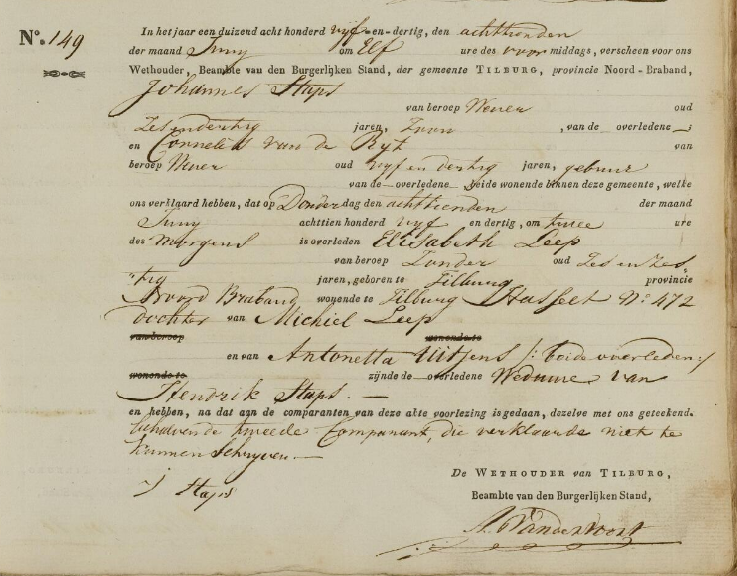 N°. 149
In het jaar een duizend acht honderd vijf-en-dertig, den achttienden
der maand Juny om Elf ure des voor middags, verscheen voor ons
Wethouder, Beambte van den Burgerlijken Stand, der gemeente TILBURG, provincie Noord-Braband,
Johannes Staps
van beroep Wever oud
Zes en dertig jaren, Zoon, van de overledene;
en Cornelis van de Ryt van
beroep Wever oud vyf en dertig jaren, gebuur
van de overledene beide wonende binnen deze gemeente, welke
ons verklaard hebben, dat op Donderdag den achttienden der maand
Juny achttien honderd vyf en dertig, om twee ure
des morgens is overleden Elisabeth Leep
van beroep Zonder oud Zes en Zes„
„tig jaren, geboren te Tilburg provincie
Noord Braband wonende te Tilburg Hasselt N° 472
dochter van Michiel Leep
van beroep wonende te
en van Antonetta Uitjens /: beide overleden :/
wonende te zijnde de overledene Weduwe van
Hendrik Staps. —
en hebben, na dat aan de comparanten van deze akte voorlezing is gedaan, dezelve met ons geteekend.
behalven de tweede Comparant, die verklaarde niet te
kunnen schryven —
J Staps
De WETHOUDER van TILBURG,
Beambte van den Burgerlijken Stand,